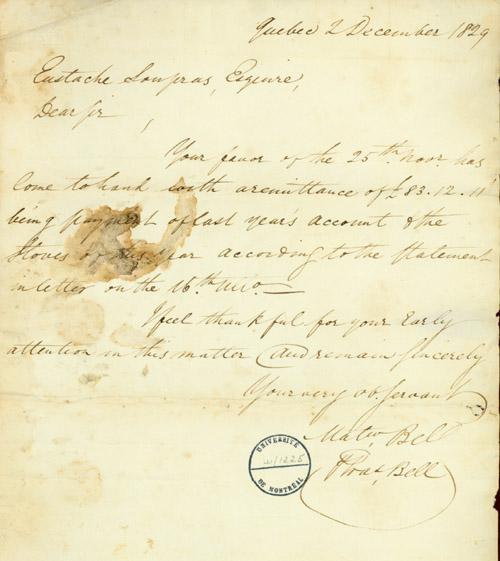 Quebec 2 December 1829
Eustache Soupras, Esquire,
Dear Sir,
Your favor of the 25th Novr. has
Come to hand with a remittance of £83.12.11
being payment of last year's account & the
Stoves of according to the Statement
in letter on the 16th
I feel thankful for your Early
attention in this matter and remain Sincerely
Your very ob. Servant
Matw Bell
Bell
UNIVERSITÉ
DE MONTRÉAL